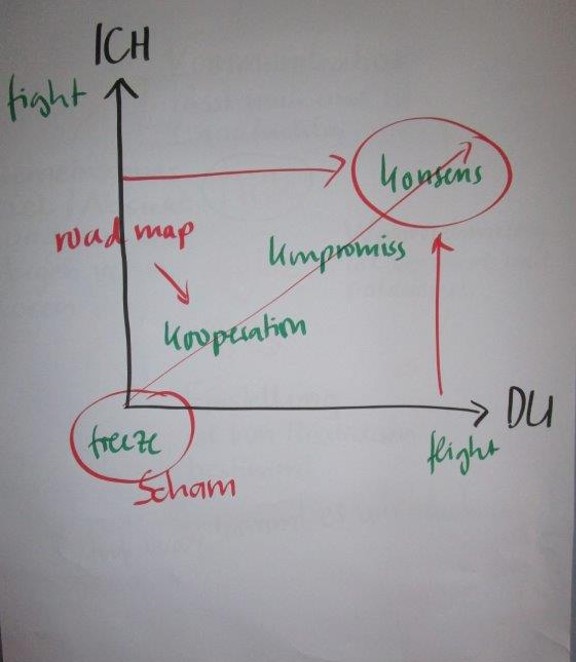 ICH
fight
Konsens
road map
Kompromiss
Kooperation
DU
freeze
flight
Scham